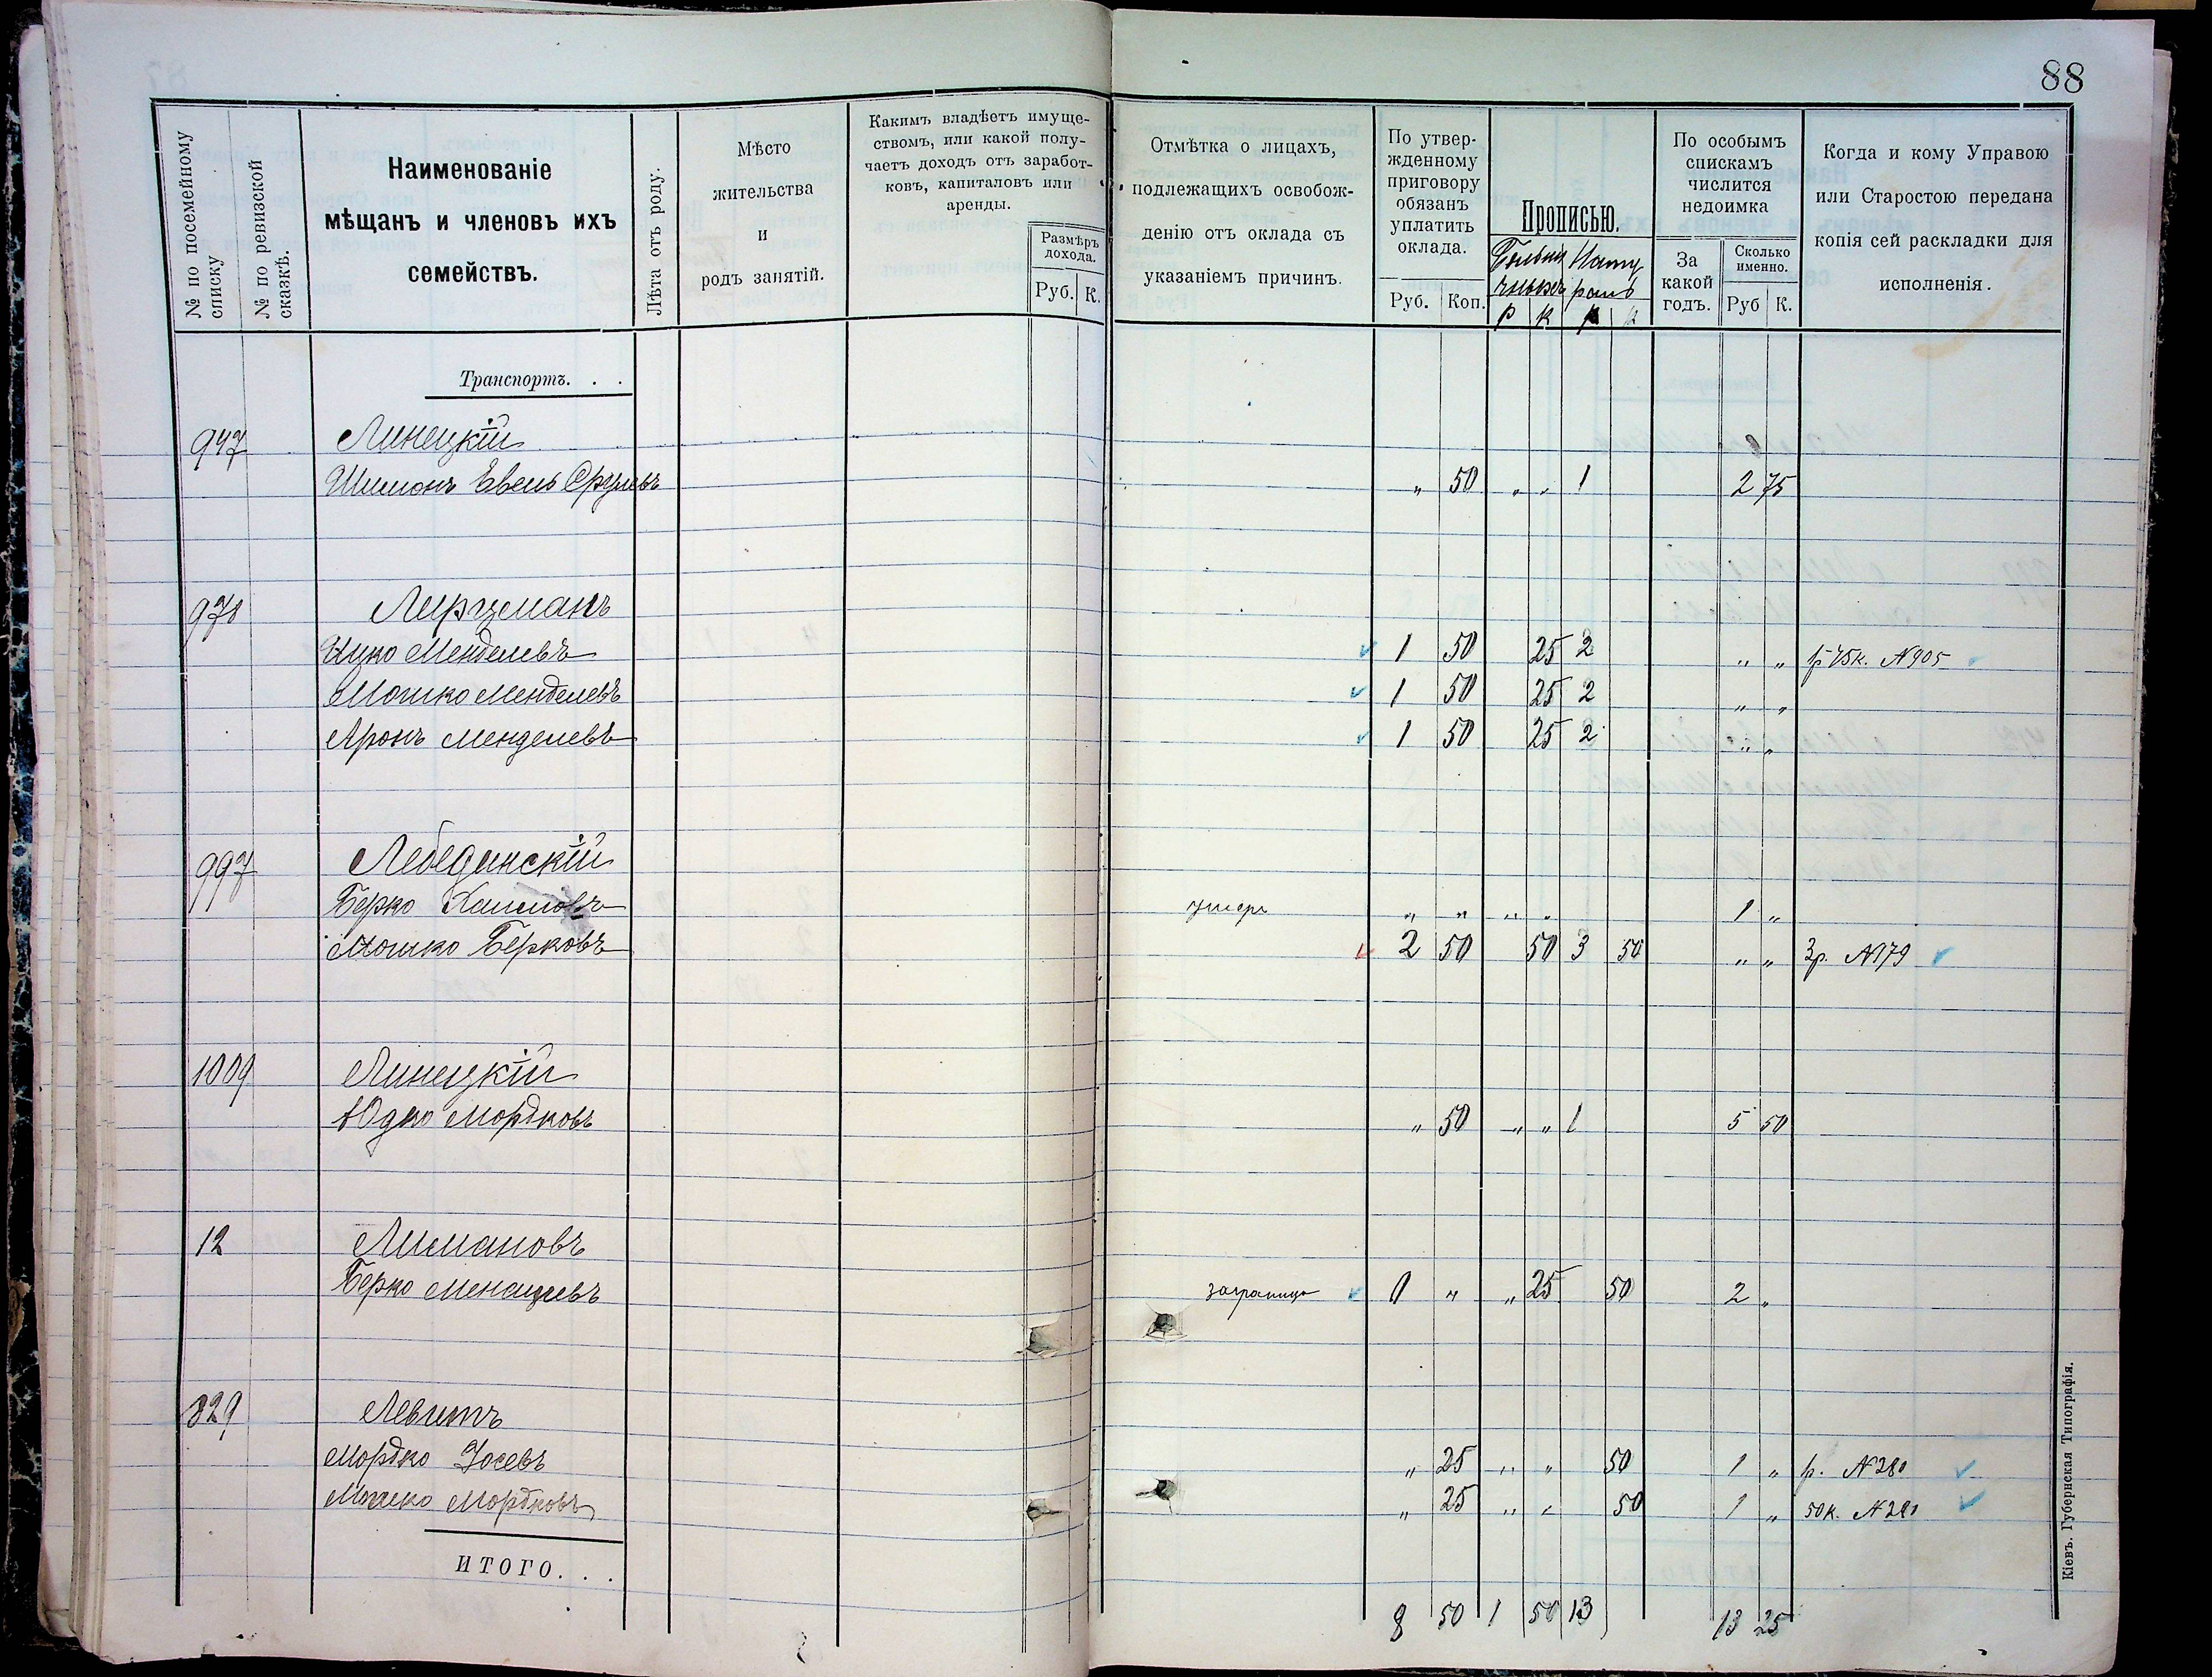 88
№ по посемейному списку
№ по ревизской сказкѣ.
Наименованіе
мѣщанъ и членовъ ихъ
семействъ.
Лѣта отъ роду.
Мѣсто
жительства
и
родъ занятій.
Какимъ владѣетъ имуще-
ствомъ, или какой полу-
чаетъ доходъ отъ заработ-
ковъ, капиталовъ или
аренды.
Размѣръ
дохода.
Руб. К.
Отмѣтка о лицахъ,
подлежащихъ освобож-
денію отъ оклада съ
указаніемъ причинъ.
По утвер-
жденному
приговору
обязанъ
уплатить
оклада.
Руб. Коп.
Прописью.
Р К Р К
По особымъ
спискамъ
числится
недоимка
За
какой
годъ.
Сколько
именно.
Руб К.
Когда и кому Управою
или Старостою передана
копія сей раскладки для
исполненія.
Транспортъ. . .
947 Линецкій
Шимонъ Евель Срулевъ " 50 " " 1 2 75
978 Лирцманъ
Ицко Менделевъ 1 50 25 2 " " 1р 75к. №905
Мошко Менделевъ 1 50 25 2 " "
Аронъ Менделевъ 1 50 25 2 " "
997 Лебединскій
Берко Хаимовъ умеръ " " " " 1 "
Мошко Берковъ 2 50 50 3 50 " " 3р. №179
1009 Линецкій
Юдко Мордковъ " 50 " " 1 5 50
12 Лимановъ
Берко Менашевъ заграницо 1 " " 25 50 2 "
829 Левитъ
Мордко Іосевъ " 25 " " 50 1 " р. №280
Мошко Мордковъ " 25 " " 50 1 " 50к. №281
ИТОГО. . .
8 50 1 50 13 13 25
Кіевъ. Губернская Типографія.